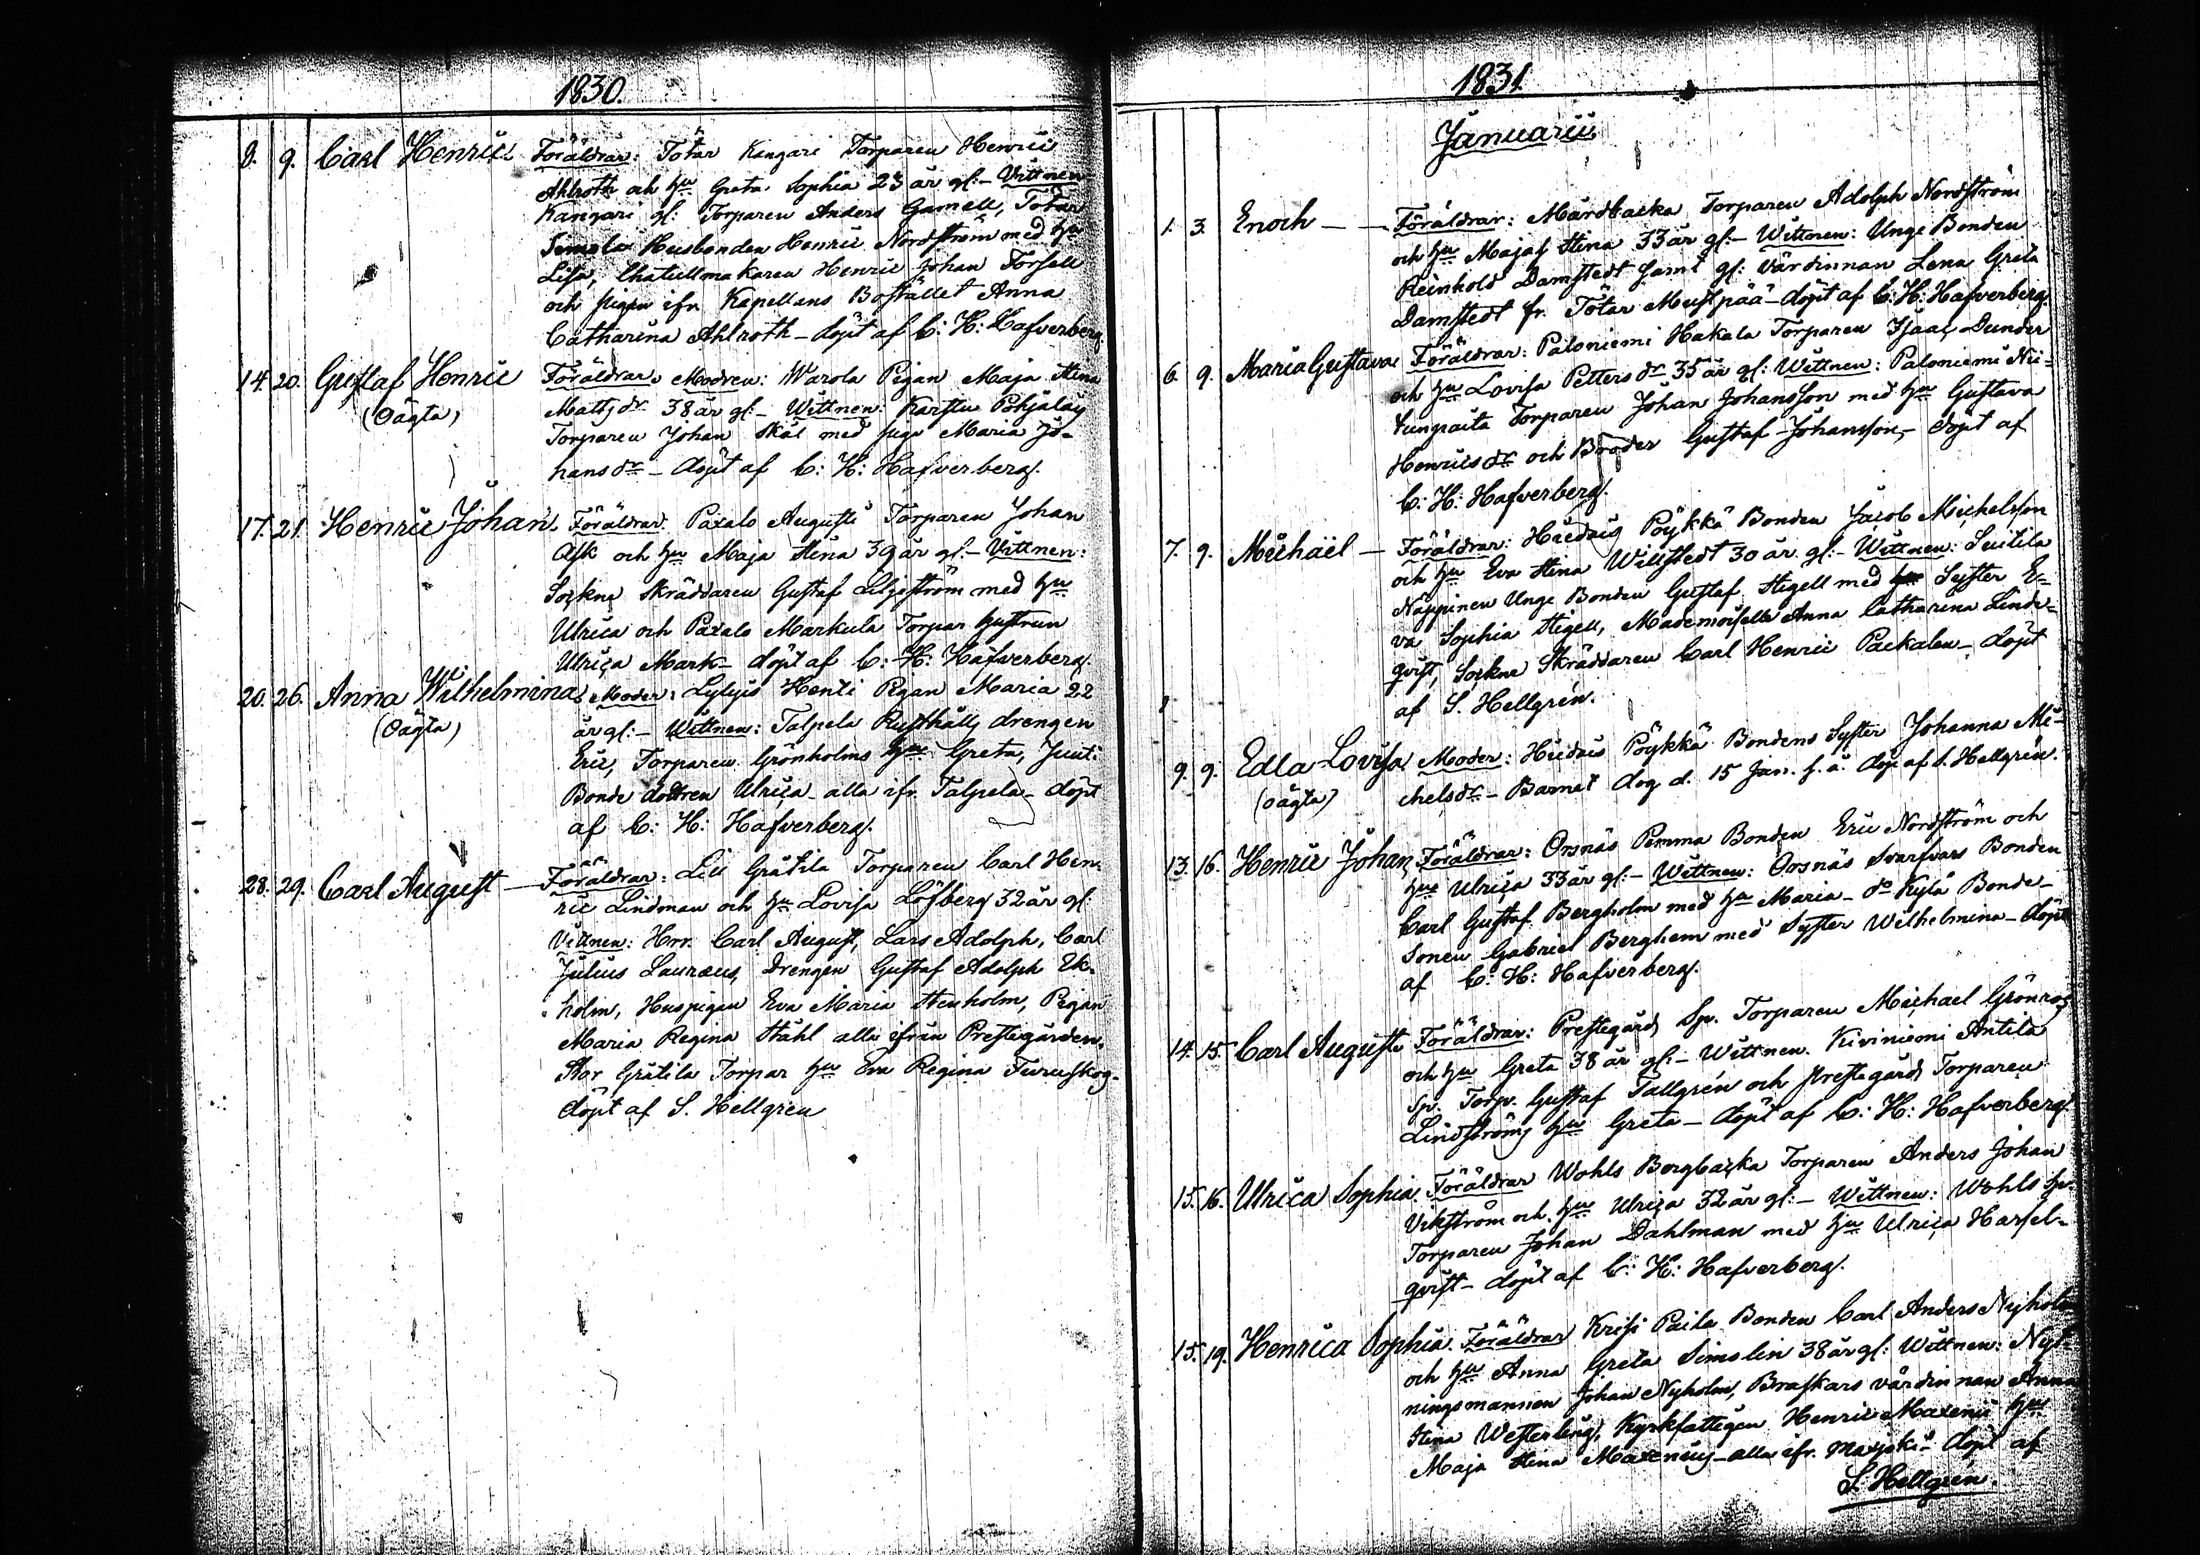 1830.
8. 9. Carl Henric Föräldrar: Tötar Kangari Torparen Henric
Ahlroth och hu Greta Sophia 23 år gl:- Vittnen
Kangari gl: Torparen Anders Gamell, Tötar
Simola Husbonden Henric Nordström med hu
Lisa, Chatullmakaren Henric Johan Forsell
och pigan ifr. Kapellans Bostället Anna
Catharina Ahlroth - döpt af C: H: Hafverberg.
14. 20. Gustaf Henric Föräldrar. Modren: Warola Pigan Maja Stina
(Oägta) Matts dr 38 år gl:- Wittnen: Karstu Pohjalas
Torparen Johan Skäl med piga Maria Jo-
hans dr - döpt af C: H: Hafverberg.
17. 21. Henric Johan. Föräldrar. Paxalo Augusti Torparen Johan
Ask och hu Maja Stina 39 år gl:- Vittnen:
Sockne Skräddaren Gustaf Liljeström med hu
Ulrica och Paxalo Markula Torpar hustrun
Ulrica Mark - döpt af C: H: Hafverberg.
20. 26. Anna Wilhelmina. Moder: Lylyis Henti Pigan Maria 22
(Oägta) år gl:- Wittnen: Talpela Rusthålls drengen
Eric, Torparen Grönholms hu Greta, Junt.
Bonde dottren Ulrica - alla ifr. Talpela - döpt
af C: H: Hafverberg.
28. 29. Carl August - Föräldrar: Lill Gråtila Torparen Carl Hen-
ric Lindman och hu Lovisa Löfberg 32 år gl:
Vittnen: Hrr. Carl August, Lars Adolph, Carl
Julius Lauræus, Drengen Gustaf Adolph Ek-
holm, Huspigan Eva Maria Stenholm, Pigan
Maria Regina Ståhl alla ifrån Prestegården.
Stor Gråtila Torpar hu Eva Regina Furuskog -
döpt af S. Hellgren
1831.
Januarii
1. 3. Enoch - - Föräldrar: Mårdbacka Torparen Adolph Nordström
och hu Maja Stina 33 år gl:- Wittnen: Unge Bonden
Reinhold Damstedt samt gl: Värdinnan Lena Greta
Damstedt fr. Tötar Mustpää - döpt af C: H: Hafverberg.
6. 9. Maria Gustava Föräldrar: Paloniemi Hakala Torparen Isaac Dunder
och hu Lovisa Petters dr 35 år gl: Wittnen: Paloniemi Nii-
tunpaita Torparen Johan Johansson med hu Gustava
Henrics dr och Broder Gustaf Johansson, - döpt af
C: H: Hafverberg.
7. 9. Michaël - Föräldrar: Hiidais Pöykkä Bonden Jacob Michelsson
och hu Eva Stina Willstedt 30 år gl:- Wittnen: Suitila
Näppinen Unge Bonden Gustaf Stigell med Syster E-
va Sophia Stigell, Mademoiselle Anna Catharina Linde-
qvist, Sockne Skräddaren Carl Henric Packalen - döpt
af S. Hellgrén.
9. 9. Edla Lovisa Moder: Hiidais Pöykkä Bondens Syster Johanna Mi-
(oägta) chels dr - Barnet dog d. 15 Jan. s. å. döp af S. Hellgrén.
13. 16. Henric Johan Föräldrar: Orsnäs Pemma Bonden Eric Nordström och
hu Ulrica 33 år gl:- Wittnen: Orsnäs Svarfvars Bonden
Carl Gustaf Bergholm med hu Maria - do Kylä Bonde-
Sonen Gabriel Berghem med Syster Wilhelmina - döpt
af C: H: Hafverberg.
14. 15. Carl August Föräldrar: Prestegårds Sp. Torparen Michael Grönros
och hu Greta 38 år gl:- Wittnen. Kiviniemi Antila
Sp. Torp. Gustaf Tallgrén och prestegårds Torparen
Lindströms hu Greta - döpt af C: H: Hafverberg.
15. 16. Ulrica Sophia. Föräldrar Wohls Bergbacka Torparen Anders Johan
Vikström och hu Ulrica 32 år gl:- Wittnen: Wohls Sp.
Torparen Johan Dahlman med hu Ulrica Hassel-
qvist - döpt af C: H: Hafverberg.
15. 19. Henrica Sophia. Föräldrar Krihi Paila Bonden Carl Anders Nyholm
och hu Anna Greta Simslin 38 år gl: Wittnen: Nyt-
ningsmannen Johan Nyholm, Braskars värdinnan Anna
Stina Westerling, Kyrkfattigen Henric Maxenii hu
Maja Stina Maxenius - alla ifr. Maxjoki - döpt af
S. Hellgrén.